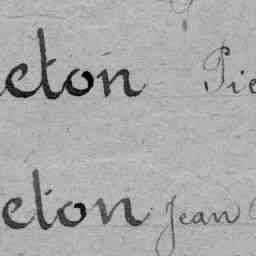 eton Pie
eton Jean